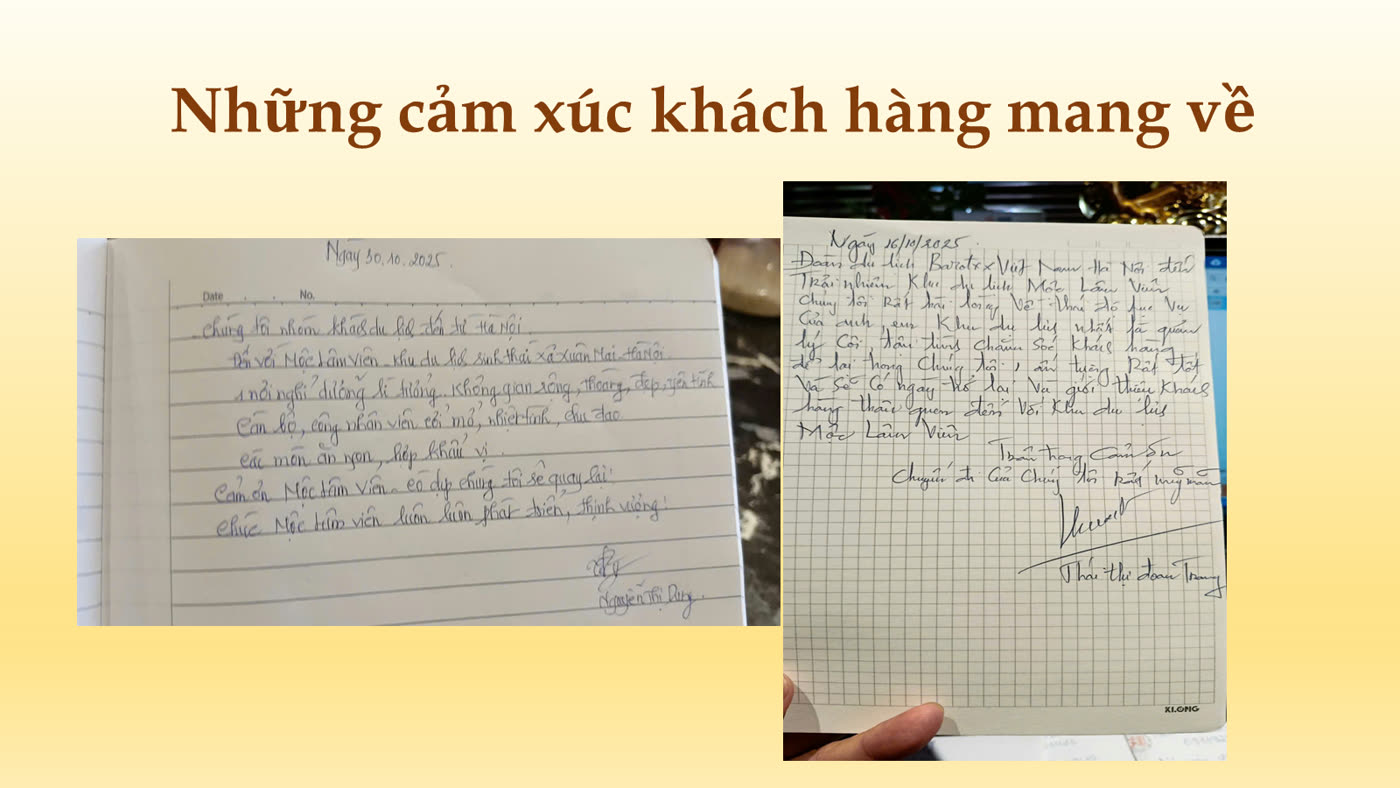 Những cảm xúc khách hàng mang về
Ngày 30.10.2025.
Date No.
Chúng tôi nhóm khách du lịch đến từ Hà Nội.
Đến với Mộc Lâm Viên - khu du lịch sinh thái xã Xuân Mai - Hà Nội
1 nơi nghỉ dưỡng lí tưởng. Không gian rộng, thoáng, đẹp, yên tĩnh
Cán bộ, công nhân viên cởi mở, nhiệt tình, chu đáo
Các món ăn ngon, hợp khẩu vị.
Cảm ơn Mộc Lâm Viên - có dịp chúng tôi sẽ quay lại!
Chúc Mộc Lâm Viên luôn luôn phát triển, thịnh vượng!
Nguyễn Thị Dung.
Ngày 16/10/2025.
Đoàn du lịch Việt Nam Hà Nội đến
Trải nghiệm Khu du lịch Mộc Lâm Viên
Chúng tôi Rất hài lòng Về thái độ phục vụ
Của anh em Khu du lịch nhất là quản
lý Côi tận tình Chăm Sóc Khách hàng
để lại trong Chúng tôi, ấn tượng Rất tốt
Và Sẽ Có ngày trở lại Và giới thiệu Khách
hàng thân quen đến Với Khu du lịch
Mộc Lâm Viên
Trân trọng Cảm ơn
Chuyến đi Của Chúng tôi Rất may mắn
Thái thị đoan Trang
XLONG